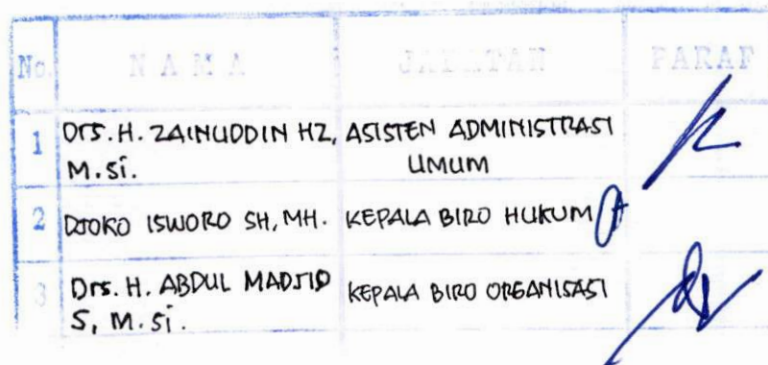 No. NAMA JABATAN PARAF
1 Drs. H. ZAINUDDIN HZ, ASISTEN ADMINISTRASI
M.Si. UMUM
2 DJOKO ISWORO SH, MH. KEPALA BIRO HUKUM
3 Drs. H. ABDUL MADJID KEPALA BIRO ORGANISASI
S, M.Si.